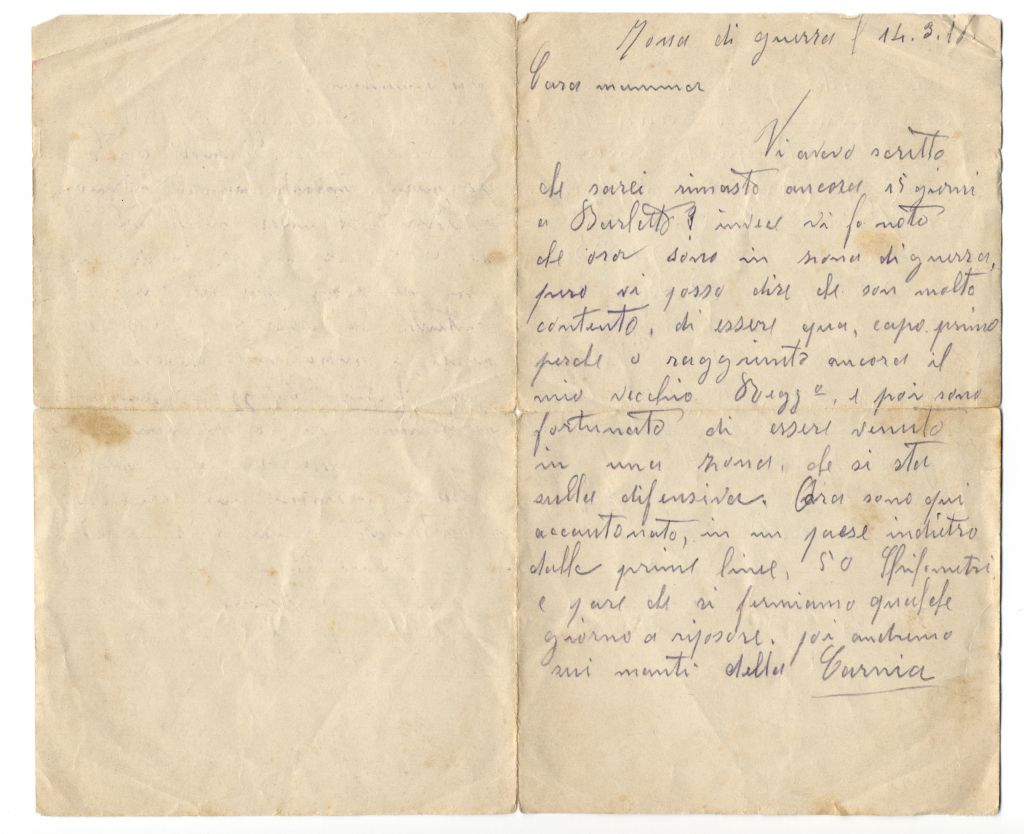 Zona di guerra / 14.3.16.
Cara mamma
Vi avevo scritto
che sarei rimasto ancora 15 giorni
a Barletta invece vi fo noto
che ora sono in zona di guerra,
pero vi posso dire che son molto
contento, di essere qua, capo primo
perche o raggiunto ancora il
mio vecchio Regg°, e poi sono
fortunato di essere venuto
in una zona, che si sta
sulla difensiva. Ora sono qui
accantonato, in un paese indietro
dalle prime linee, 50 Khilometri
e pare che si fermiamo qualche
giorno a riposare. poi andremo
sui monti della Carnia